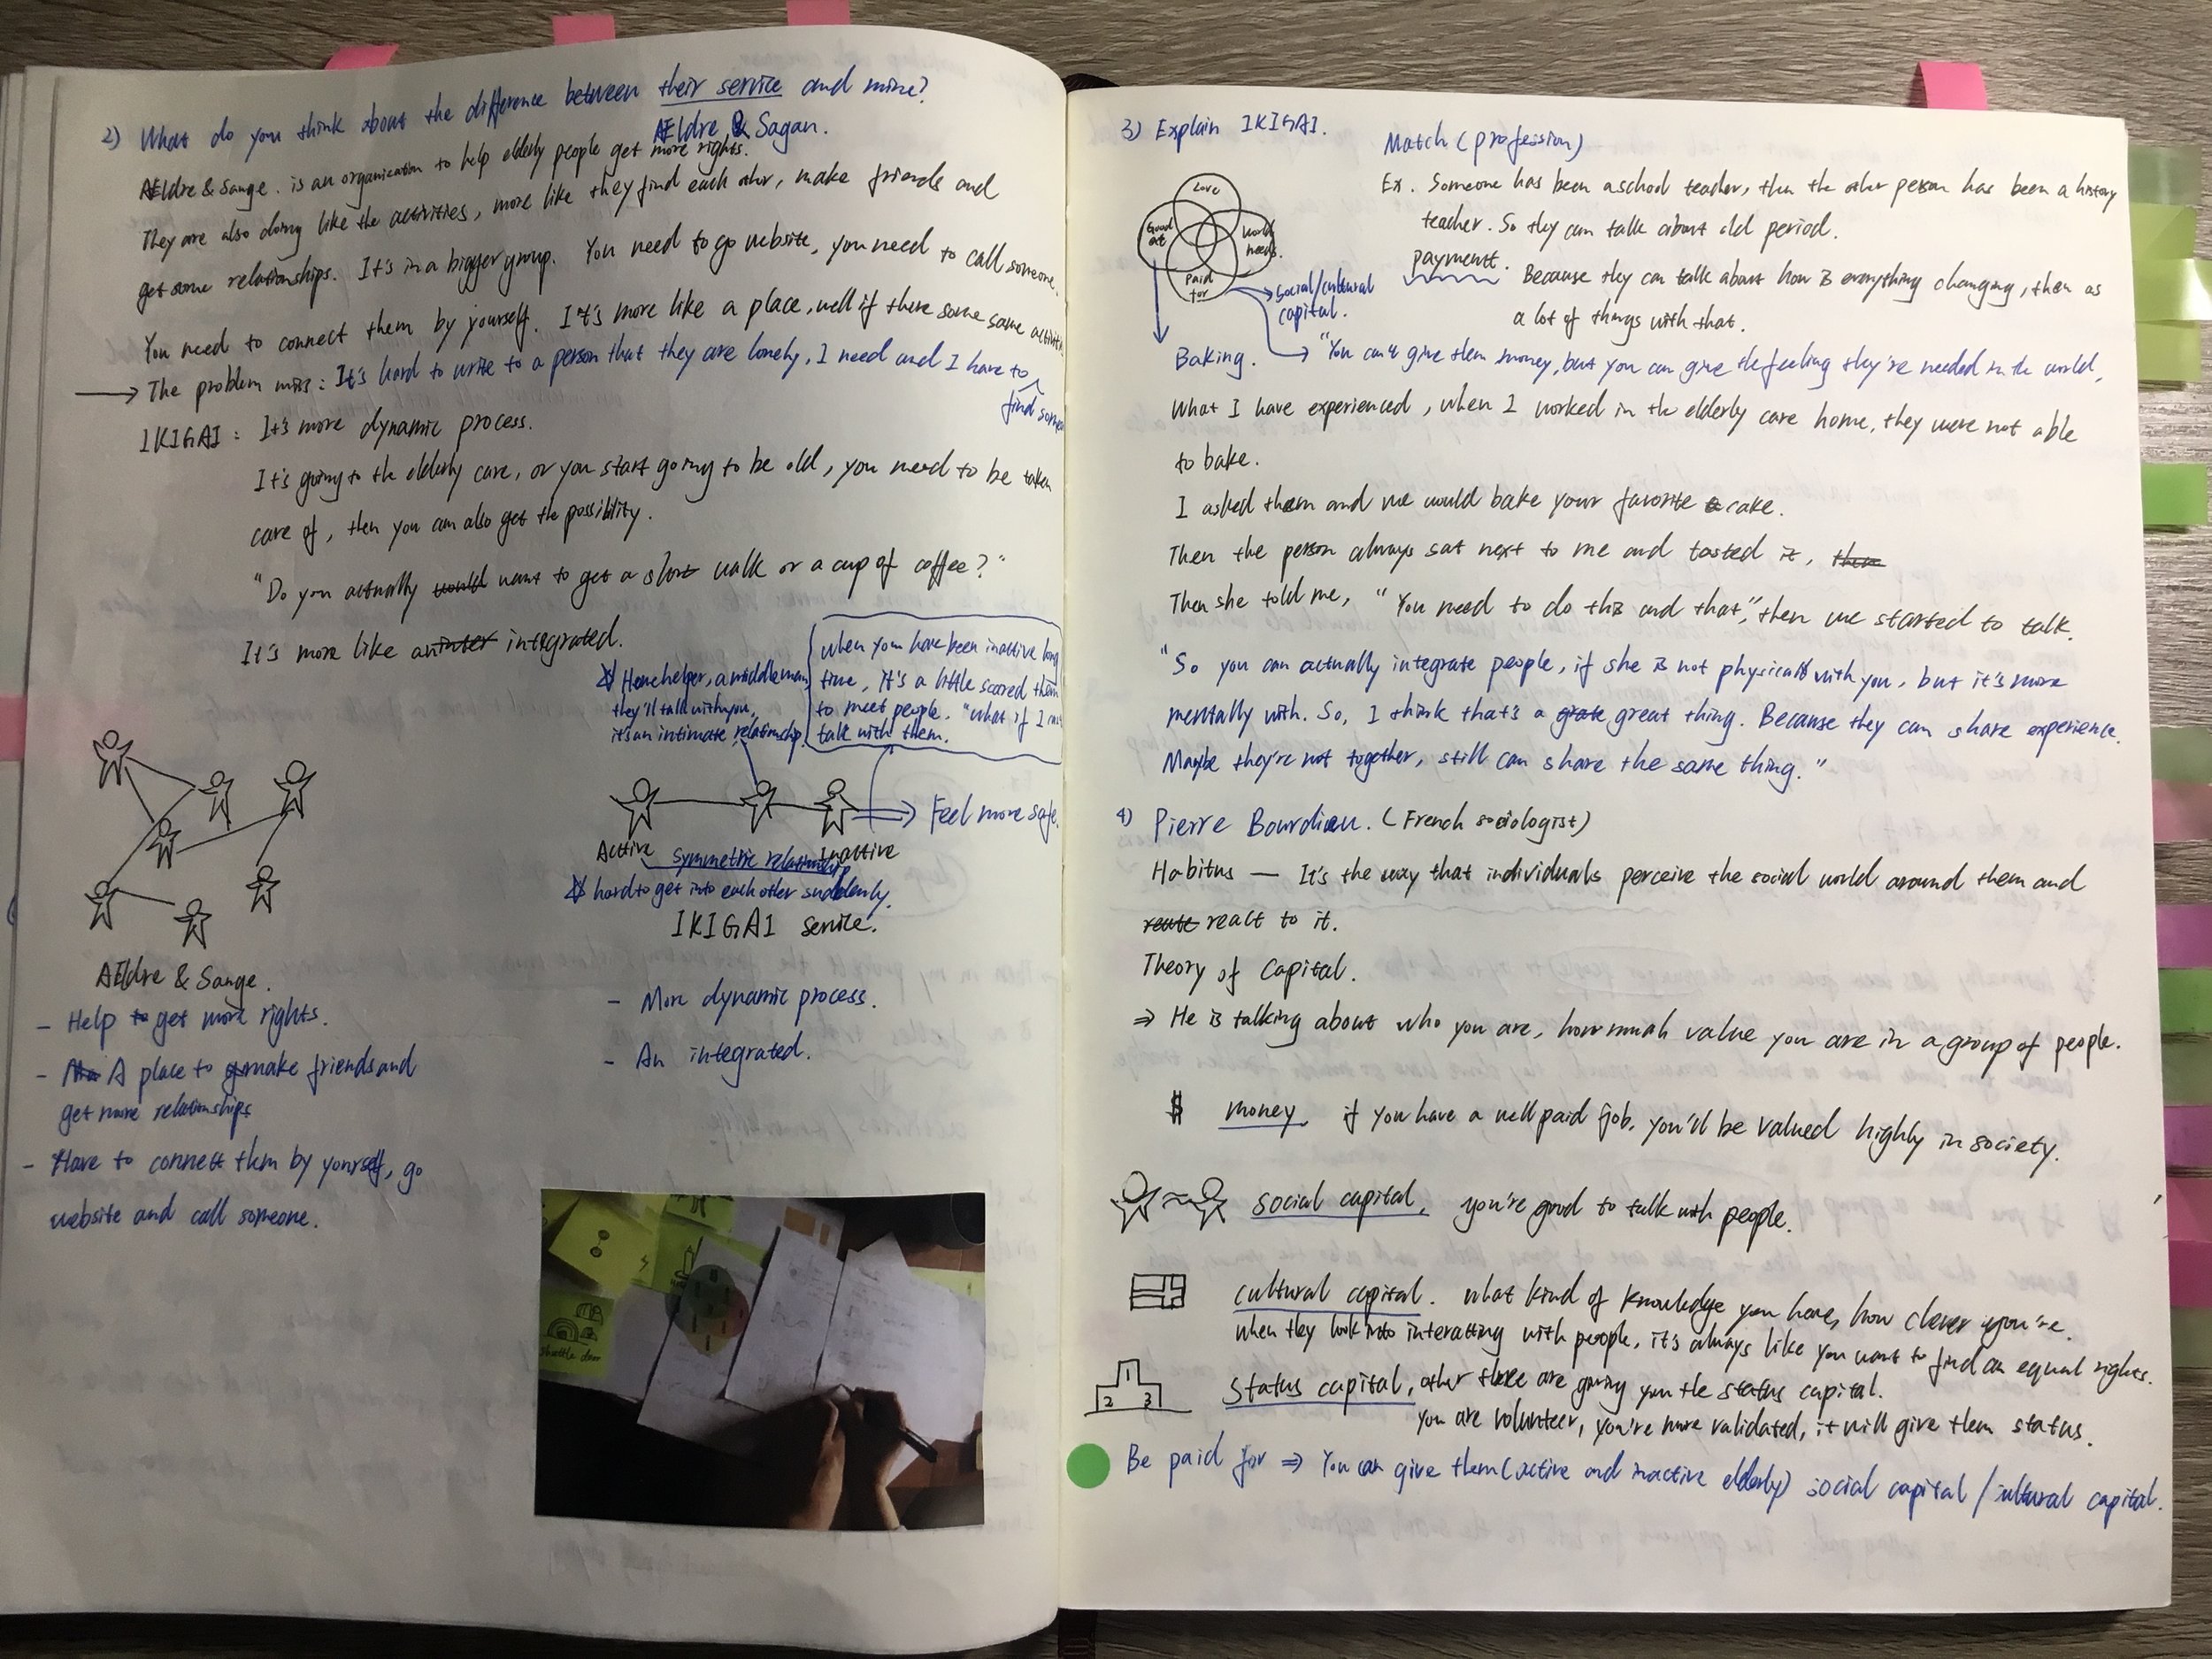 2) What do you think about the difference between their service and mine?
Ældre & Sagan.
Ældre & Sange. is an organization to help elderly people get more rights.
They are also doing like the activities, more like they find each other, make friends and
get some relationships. It's in a bigger group. You need to go website, you need to call someone.
You need to connect them by yourself. It's more like a place, well if there some same
→ The problem miss: It's hard to write to a person that they are lonely, I need and I have to
find
IKIGAI: It's more dynamic process.
It's going to the elderly care, or you start going to be old, you need to be taken
care of, then you can also get the possibility.
"Do you actually would want to get a short walk or a cup of coffee?"
It's more like integrated.
☆ Homehelper, a middleman,
they'll talk with you,
it's an intimate relationship.
when you have been inactive long
time, it's a little scared them
to meet people. "what if I
talk with them.
→ Feel more safe.
Active Inactive
Symmetric relationship
☆ hard to get into each other suddenly.
IKIGAI service.
- More dynamic process.
- An integrated.
Ældre & Sange.
- Help to get more rights.
- A place to make friends and
get more relationships
- Have to connect them by yourself, go
website and call someone.
shuttle door
3) Explain IKIGAI.
Love
Good at
World needs.
Paid for
→ social/cultural
capital.
Match (profession)
Ex. Someone has been a school teacher, then the other person has been a history
teacher. So they can talk about old period.
payment. Because they can talk about how is everything changing, then as
a lot of things with that.
Baking. → "You can't give them money, but you can give the feeling they're needed in the world.
What I have experienced, when I worked in the elderly care home, they were not able
to bake.
I asked them and we would bake your favorite cake.
Then the person always sat next to me and tasted it, then
Then she told me, "You need to do this and that," then we started to talk.
"So you can actually integrate people, if she is not physicall with you, but it's more
mentally with. So, I think that's a grate great thing. Because they can share experience.
Maybe they're not together, still can share the same thing."
4) Pierre Bourdieu. (French sociologist)
Habitus — It's the way that individuals perceive the social world around them and
react to it.
Theory of Capital.
⇒ He is talking about who you are, how much value you are in a group of people.
$ money. if you have a well paid job, you'll be valued highly in society.
social capital. you're good to talk with people.
cultural capital. what kind of knowledge you have, how clever you're.
when they look into interacting with people, it's always like you want to find an equal rights.
1
2 3
Status capital, other there are giving you the status capital.
you are volunteer, you're more validated, it will give them status.
Be paid for ⇒ You can give them (active and inactive elderly) social capital / cultural capital.